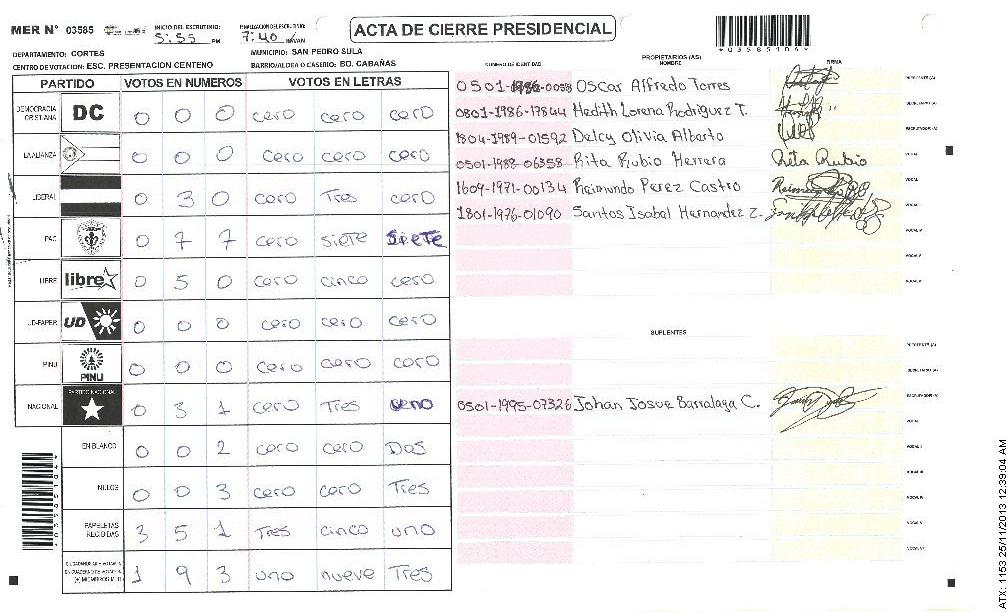 MER N° 03585 INICIO DEL ESCRUTINIO: 5:55 PM FINALIZACION DEL ESCRUTINIO: 7:40 ACTA DE CIERRE PRESIDENCIAL
DEPARTAMENTO: CORTES MUNICIPIO: SAN PEDRO SULA
CENTRO DE VOTACION: ESC. PRESENTACION CENTENO BARRIO/ALDEA O CASERIO: BO. CABAÑAS
PARTIDO VOTOS EN NUMEROS VOTOS EN LETRAS
DEMOCRACIA CRISTIANA DC 0 0 0 cero cero cero
LA ALIANZA 0 0 0 cero cero cero
LIBERAL 0 3 0 cero Tres cero
PAC 0 7 7 cero siete siete
LIBRE libre 0 5 0 cero cinco cero
UD-FAPER UD 0 0 0 cero cero cero
PINU PINU 0 0 0 cero cero cero
NACIONAL PARTIDO NACIONAL 0 3 1 cero Tres uno
EN BLANCO 0 0 2 cero cero Dos
NULOS 0 0 3 cero cero Tres
PAPELETAS RECIBIDAS 3 5 1 Tres cinco uno
1 9 3 uno nueve Tres
NUMERO DE IDENTIDAD PROPIETARIOS (AS) NOMBRE FIRMA
0501-1986-0058 Oscar Alfredo Torres PRESIDENTE (A)
0801-1986-17844 Hedith Lorena Rodriguez T. SECRETARIO (A)
1804-1989-01592 Delcy Olivia Alberto ESCRUTADOR (A)
0501-1988-06358 Rita Rubio Herrera Rita Rubio VOCAL
1609-1971-00134 Reimundo Perez Castro VOCAL
1801-1976-01090 Santos Isabal Hernandez Z.
SUPLENTES
PRESIDENTE (A)
SECRETARIO (A)
0501-1995-07326 Johan Josue Barralaga C. ESCRUTADOR (A)
ATX: 1153 25/11/2013 12:39:04 AM